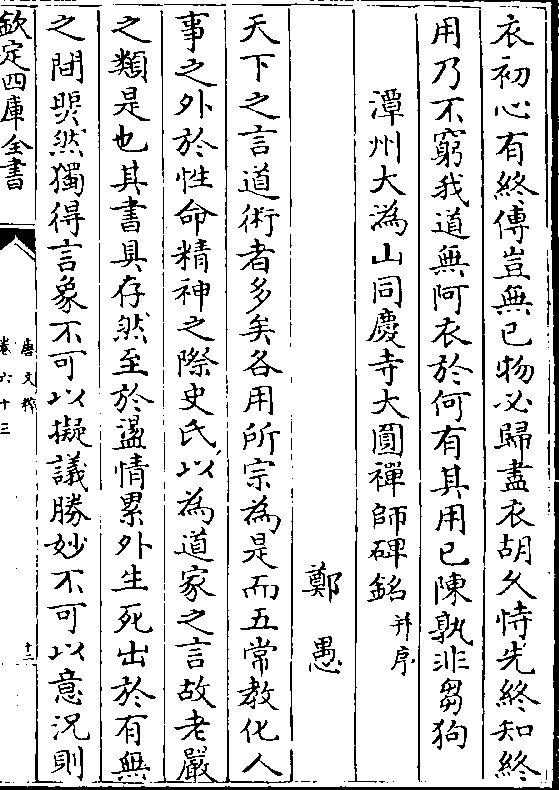 衣初心有終傳豈無已物必歸盡衣胡久恃先終知終
用乃不窮我道無阿衣於何有其用已陳孰非芻狗
潭州大溈山同慶寺大圓禪師碑銘并序
鄭愚
天下之言道術者多矣各用所宗為是而五常教化人
事之外於性命精神之際史氏以為道家之言故老嚴
之類是也其書具存然至於盪情累外生死出於有無
之間㷡然獨得言象不可以擬議勝妙不可以意況則
欽定四庫全書
唐文粹
卷六十三
十二